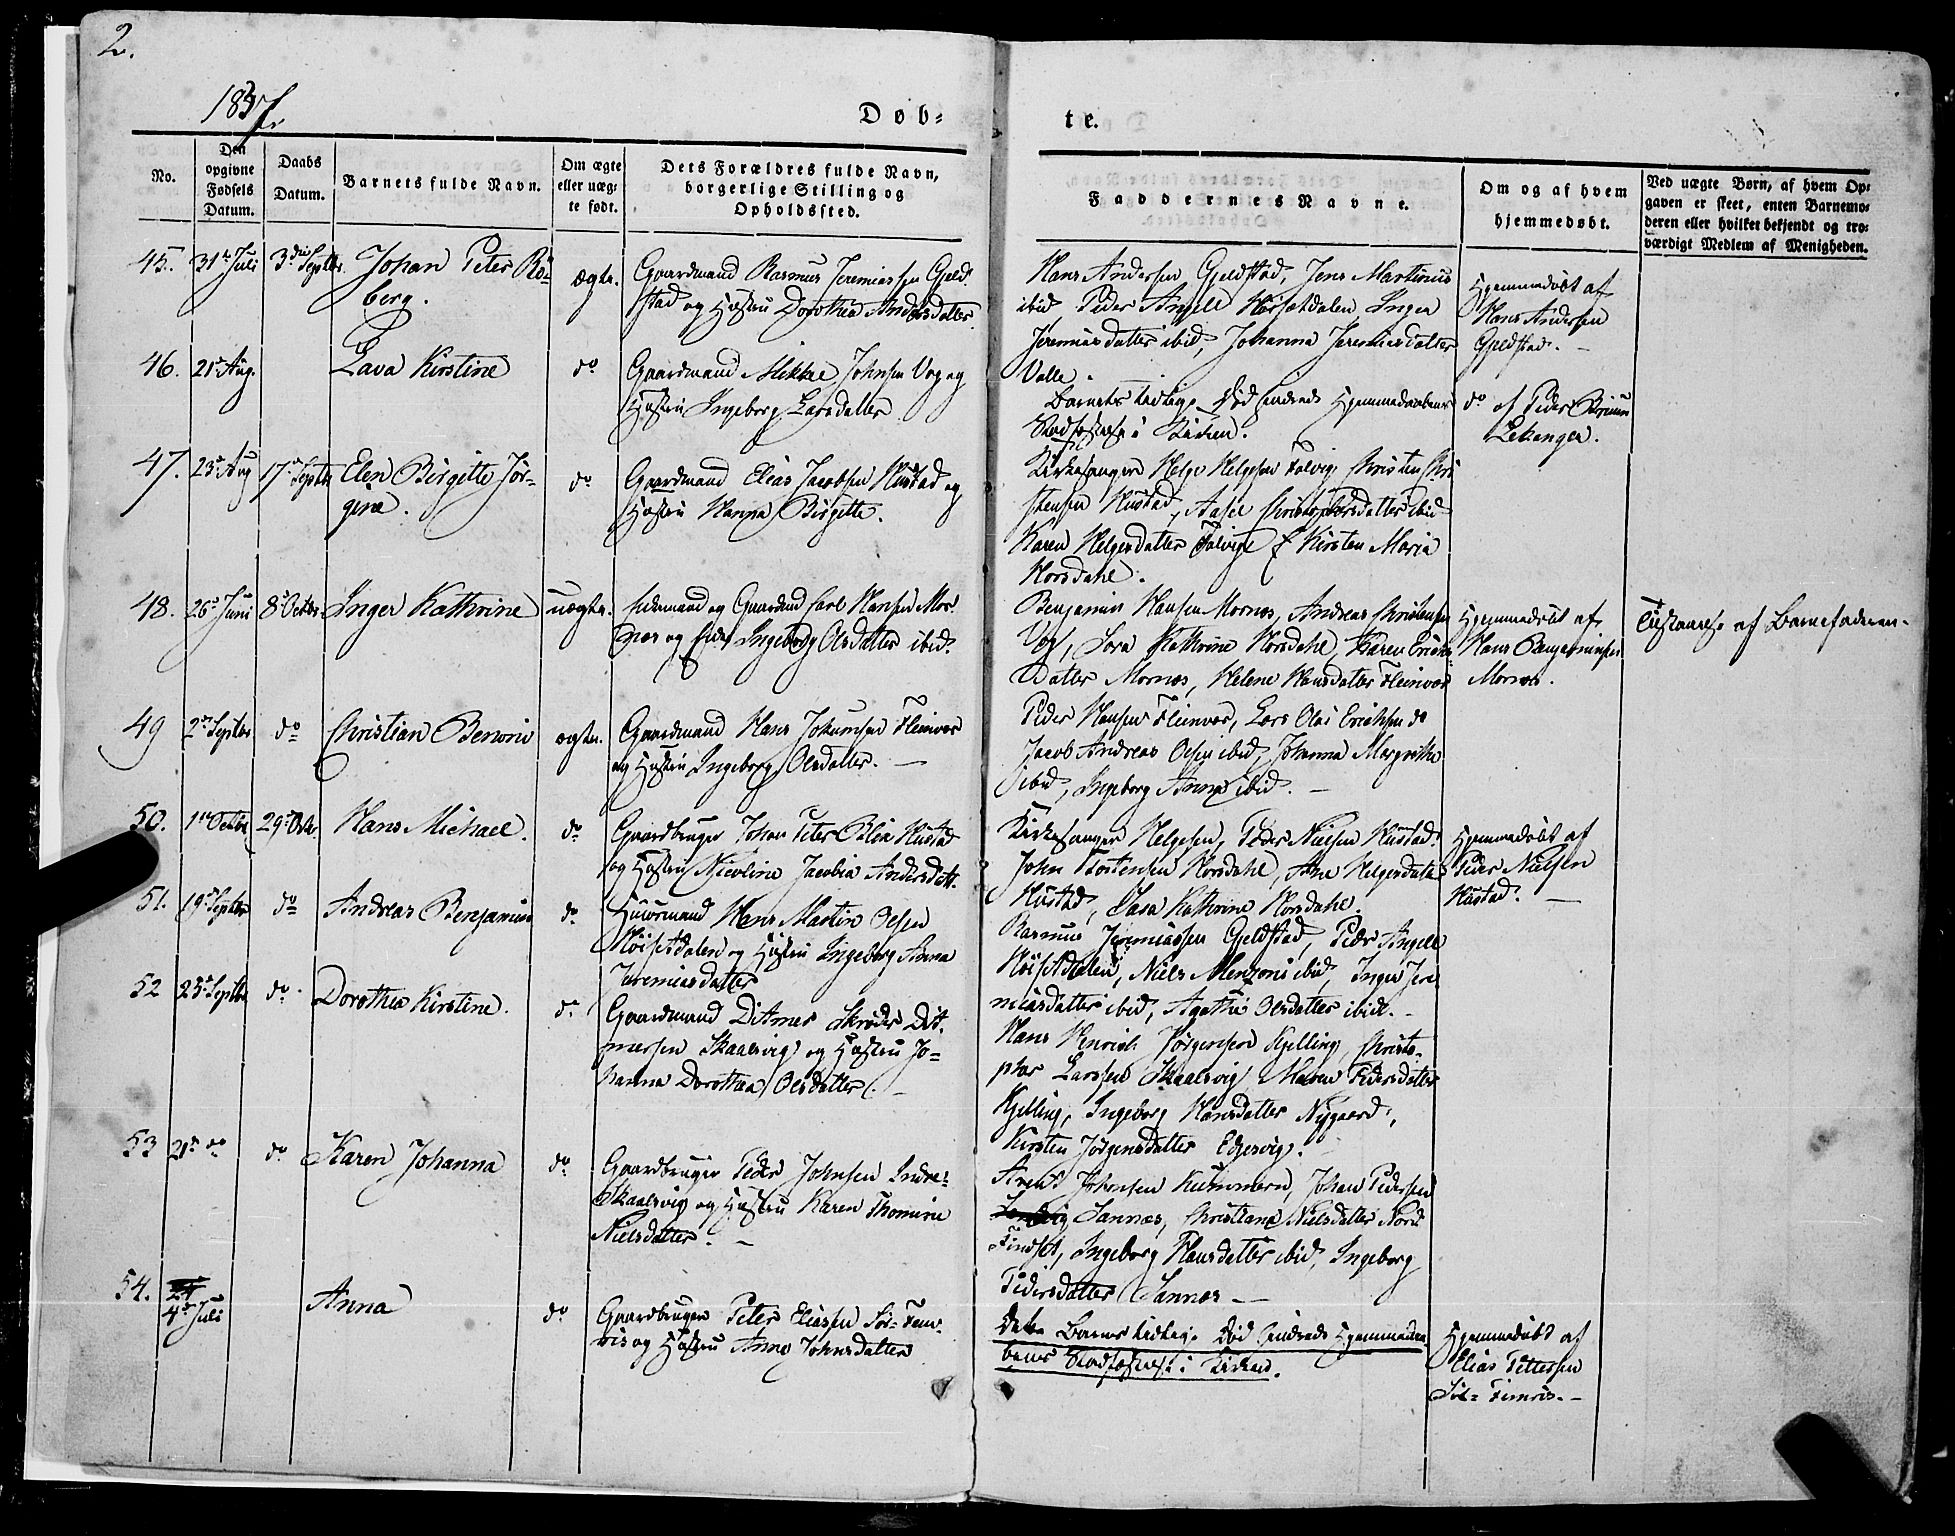 2.
1837.
Døb-
te.
No.
Den opgivne Fødsels Datum.
Daabs Datum.
Barnets fulde Navn.
Om ægte eller uæg- te født.
Dets Forældres fulde Navn, borgerlige Stilling og Opholdssted.
Faddernes Navne.
Om og af hvem hjemmedøbt.
Ved uægte Børn, af hvem Op- gaven er skeet, enten Barnemo- deren eller hvilket bekjendt og tro- værdigt Medlem af Menigheden.
45. 31te Juli 3die Septbr. Johan Peter Rö-
berg.
ægte.
Gaardmand Rasmus Jeremiassen Gjeld-
stad og Hustru Dorothea Andersdatter.
Hans Andersen Gjeldstad, Jens Martinus
ibid Peder Angell Høisetdalen Inger
Jeremiasdatter ibid, Johanna Jeremiasdatter
Valle.
Hjemmedøbt af
Hans Andersen
Gjeldstad. -
46. 21de Aug. Lava Kirstine do
Gaardmand Mikkel Johnsen Vog og
Hustru Ingeborg Larsdatter
Barnets tidlige Død hindrede Hjemmedaabens
Stadfæstelse i Kirken.
do af Peder
Lekanger.
47. 23de Aug 17de Septbr Elen Birgitte Jör-
gine.
do
Gaardmand Elias Jacobsen Hustad og
Hustru Hanna Birgitte.
Kirkesanger Helge Helgesen Christen Chri-
stensen Hustad, Christophersdatter ibid
Karen Helgesdatter & Kirsten Maria
Horsdahl.
48. 26de Juni 8de Octbr. Inger Kathrine uægte.
og Carl Hansen Mor-
næs og Ingeborg Olsdatter ibid.
Benjamin Hansen Mornæs, Andreas Christensen
Vog, Kathrine Horsdahl, Karen Erichs-
datter Mornæs, Helene Hansdatter Fleinvær
Hjemmedøbt af
Hans Benjaminsen
Mornæs.
Tilstaaelse af Barnefaderen.
49 2den Septbr do Christian Benoni ægte.
Gaardmand Hans Johansen Fleinvær
og Hustru Ingeborg Olsdatter. -
Peder Hansen Fleinvær, Lars Olai Erichsen do
Jacob Andreas Olsen ibid, Johanna Margrethe
ibid, Ingeborg Anna ibid. -
50. 1ste Octbr 29de Octbr. Hans Michael. do
Gaardbruger Johan Peter Hustad
og Hustru Nicoline Jacobia Andersdatt.
Kirkesanger Helgesen, Peder Nielsen Hustad.
John Tostensen Horsdahl, Ane Helgesdatter
Hustad, Kathrine Horsdahl.
Hjemmedøbt af
Peder Nielsen
Hustad. -
51. 19de Septbr do Andreas Benjamin do
Huusmand Hans Martin Olsen
Høisetdalen og Hustru Ingeborg Anna
Jeremiasdatter
Rasmus Jeremiassen Gjeldstad, Peder Angell
Høisetdalen, Niels ibid, Inger Jere-
miasdatter ibid, Agathe Olsdatter ibid. -
52 23de Septbr do Dorothea Kirstine. do
Gaardmand Ditmer Skrøder Dit-
mersen Skaalsvig og Hustru Jo-
hanna Dorothea Olsdatter. -
Hans Henrich Jörgensen Kjelling, Christo-
pher Larssen Skaalsvig Maren Pedersdatter
Kjelling, Ingeborg Hansdatter Nygaard,
Kirsten Jörgensdatter
53 21de do do Karen Johanna do
Gaardbruger Peder Johnsen Indre-
Skaalsvig og Hustru Karen Thomine
Nielsdatter. -
Arent Johnsen Johan Pedersen
Sannæs, Christiane Nielsdatter Nord
Findset, Ingeborg Hansdatter ibid, Ingeborg
Pedersdatter Sannæs -
54. 24
4de Juli
Anna do
Gaardbruger Peter Eliassen Sör-Fem-
ris og Hustru Anne Johnsdatter
Dette Barns tidlige Död hindrede Hjemmedaa-
bens Stadfæstelse i Kirken.
Hjemmedøbt af
Elias Pettersen
Sör-Femris. -